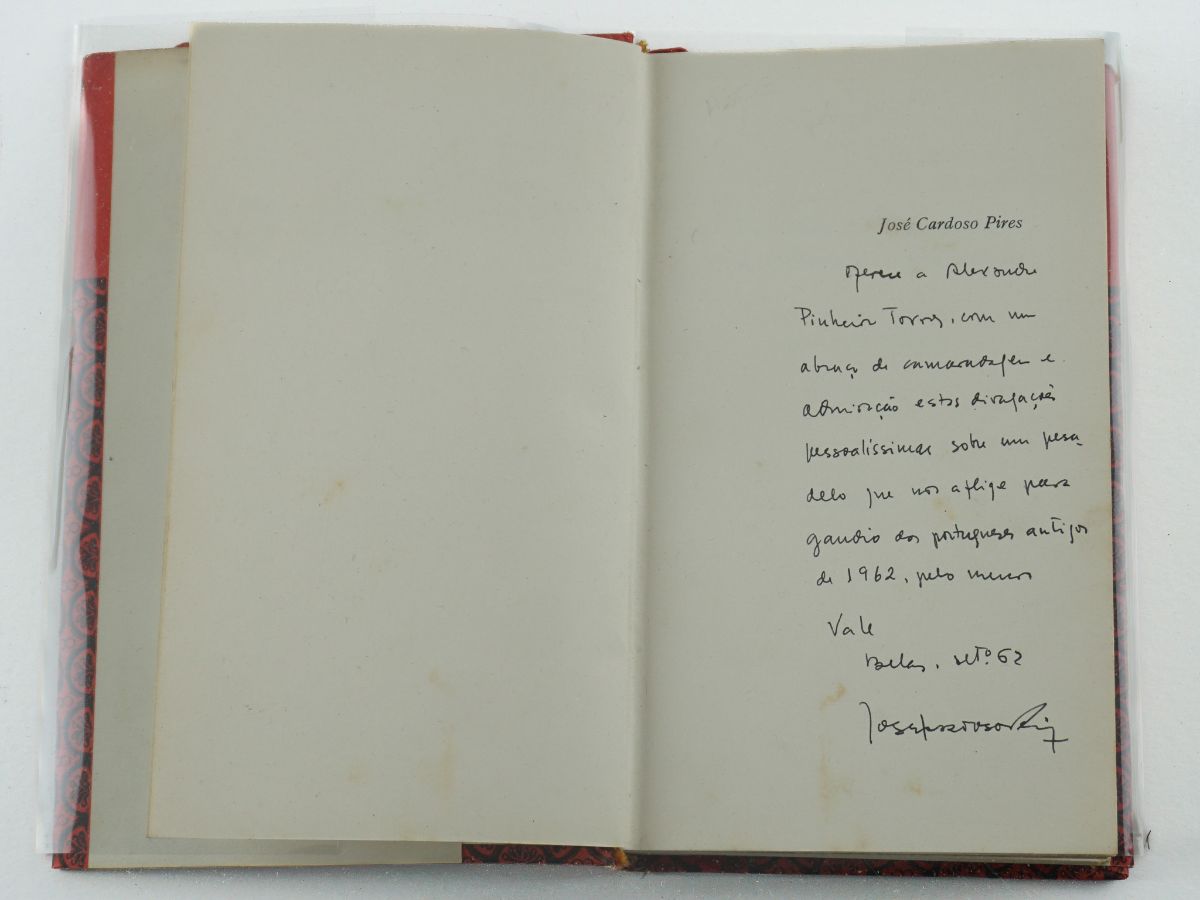 José Cardoso Pires
oferece a Alexandre
Pinheiro Torres, com um
abraço de camaradagem e
admiração estas divagações
pessoalíssimas sobre um pesa
delo que nos aflige para
gaudio dos portugueses antigos
de 1962, pelo menos
Vale
Belas, setº. 62
José Cardoso Pires